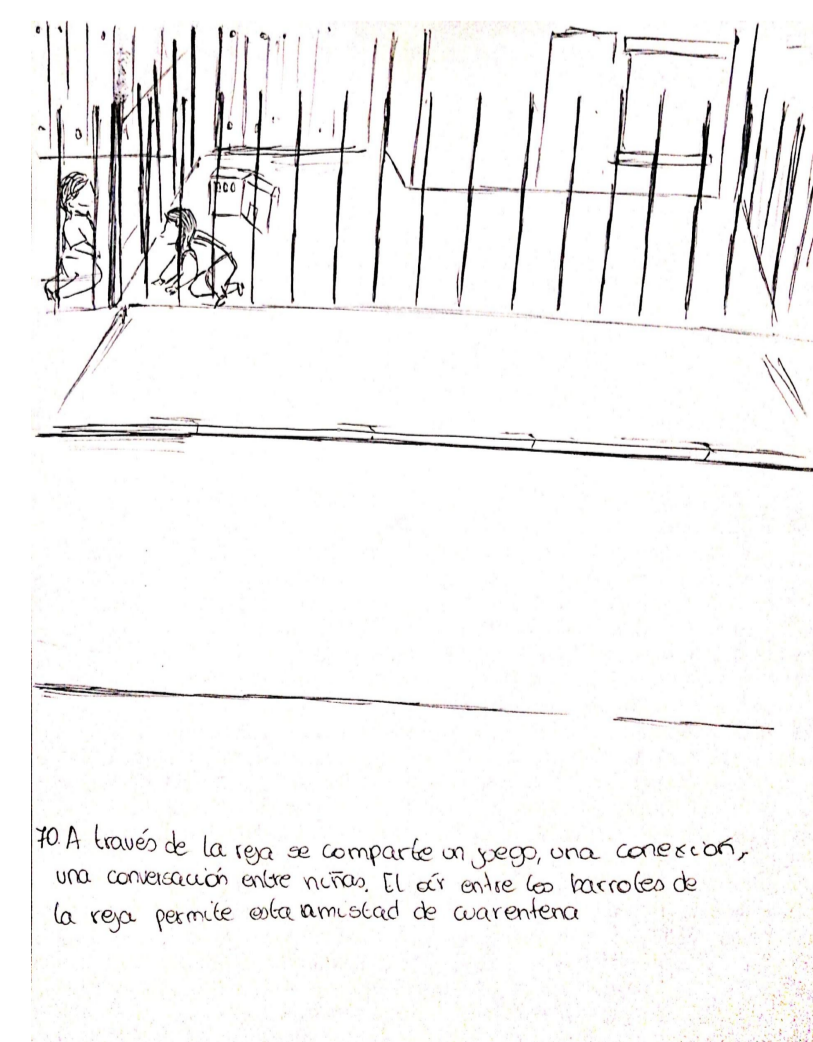 70. A través de la reja se comparte un juego, una conexión,
una conversación entre niñas. El oír entre los barrotes de
la reja permite esta amistad de cuarentena